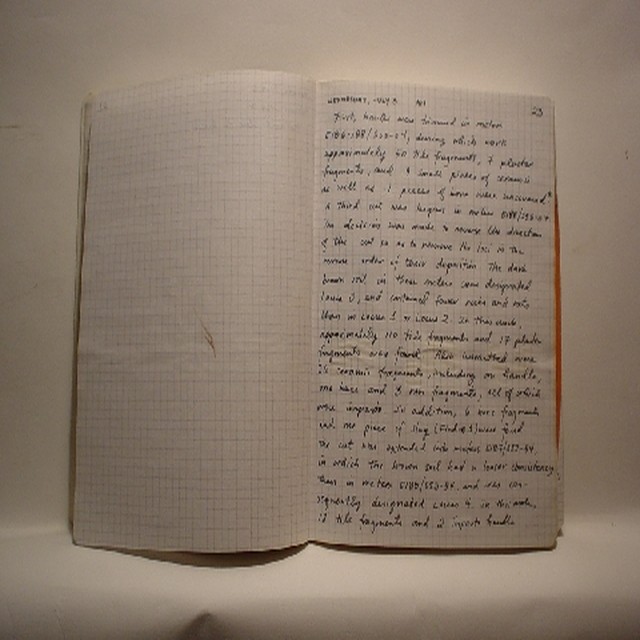 WEDNESDAY, JULY 3
23
First, baulks were trimmed in meters
during which work
approximately 50 tile fragments, 7 plaster
fragments, and 4 small pieces of ceramic
as well as 1 pieces of bone were uncovered.
A third cut was begun in meters
The decision was made to reverse the direction
of the cut so as to remove the loci in the
reverse order of their deposition. The dark
brown soil in these meters were designated
Locus 3, and contained fewer rocks and roots
than in Locus 1 or Locus 2. In this work,
approximately 110 tile fragments and 17 plaster
fragments was found. Also unearthed were
ceramic fragments, including one handle,
one base and 3 rim fragments, all of which
were impasto. In addition, 6 bone fragments
and one piece of slag (Find #1) were found
The cut was extended into meters
in which the brown soil had a looser consistency
than in meters and was con-
sequently designated Locus 4. In this work,
18 tile fragments and 2 impasto handle